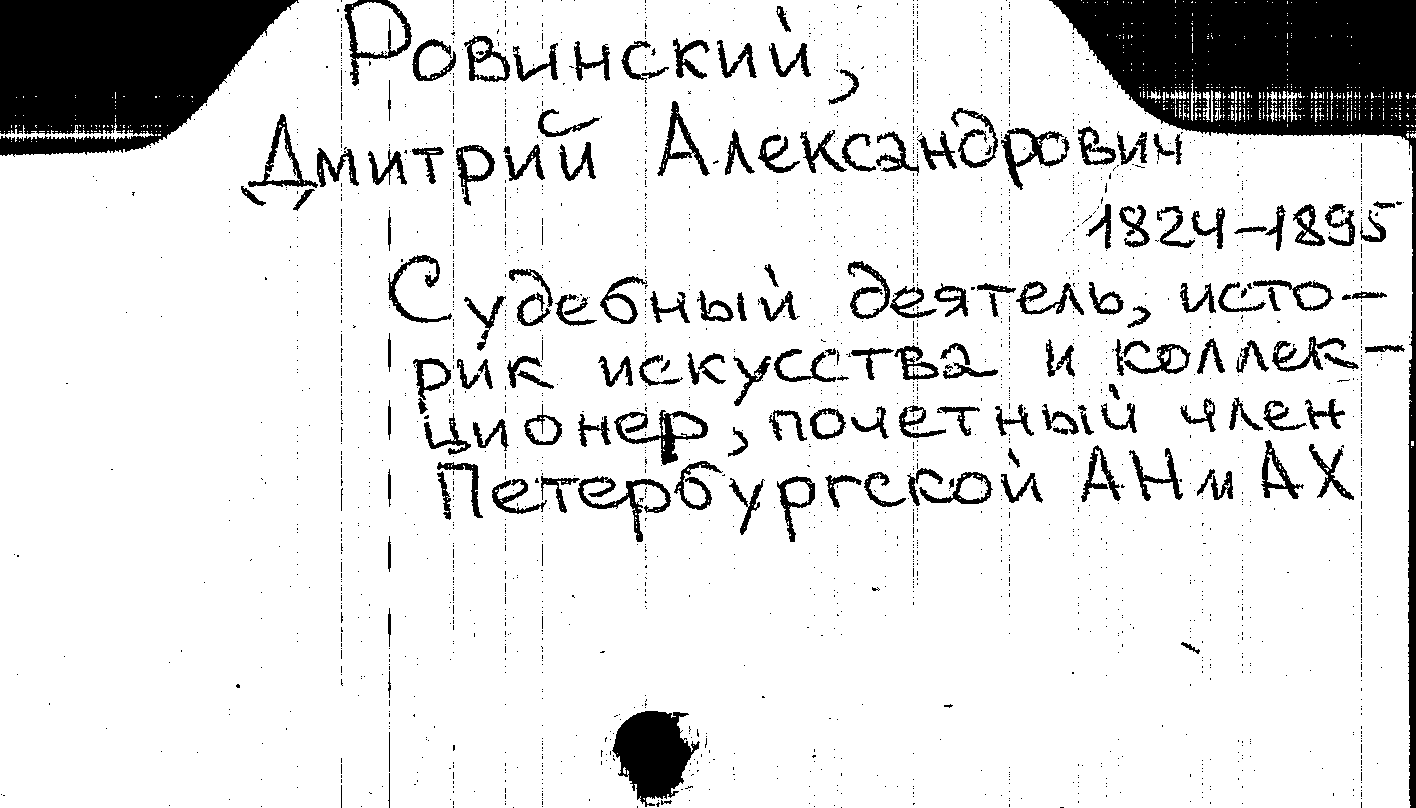 Ровинский,
Дмитрий Александрович
1824-1895
Судебный деятель, исто-
рик искусства и коллек-
ционер, почетный член
Петербургской АН и АХ